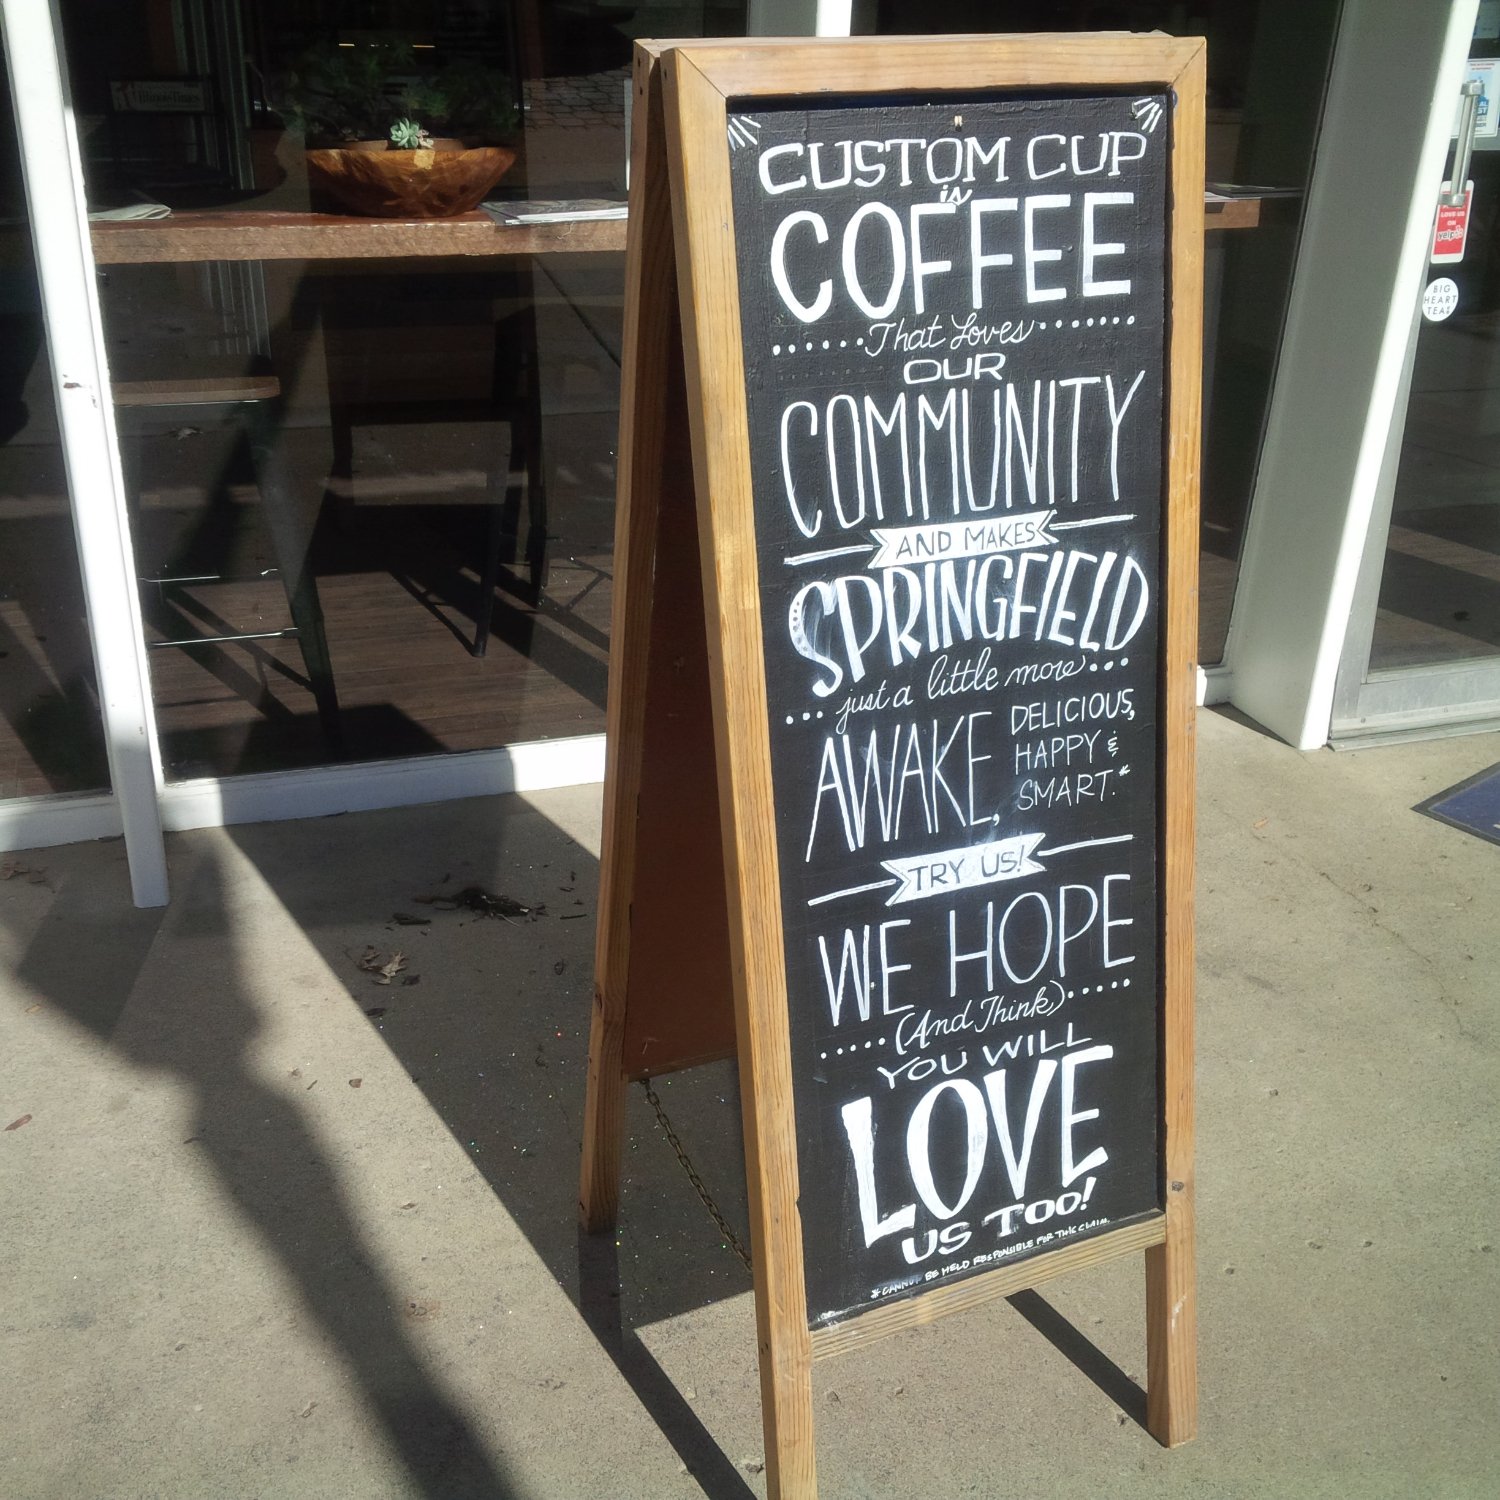 CUSTOM CUP
in
COFFEE
That Loves
OUR
COMMUNITY
AND MAKES
SPRINGFIELD
just a little more
AWAKE, DELICIOUS,
HAPPY &
SMART.*
TRY US!
WE HOPE
(And Think)
YOU WILL
LOVE
US TOO!
* CANNOT BE HELD RESPONSIBLE FOR THIS CLAIM.
Illinois Times
LOVE US
ON
yelp
BIG
HEART
TEA